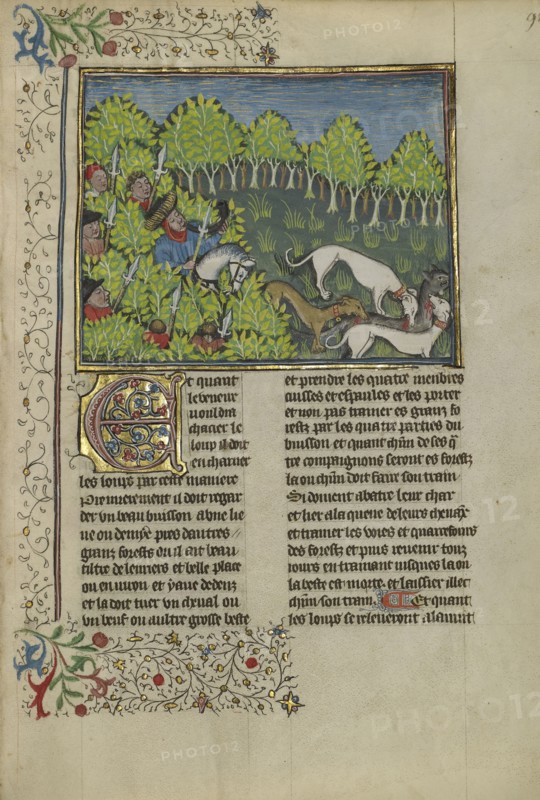 Et quant
le veneur
vouldra
chacer le
loup il doit
encharner
les loups par ceste maniere
Premierement il doit regar
der vn beau buisson a vne lie
ue ou demye pres dautres
granz forestz ou il ait beau
tiltre de leuriers et belle place
ou enuiron et yaue dedenz
et la doit tuer vn cheual ou
vn beuf ou aultre grosse beste
et prendre les quatre menbres
cuisses et espaules et les porter
et non pas trainer es granz fo
restz par les quatre parties du
buisson et quant chũn de ses q̃
tre compaignons seront es forestz
la ou chũn doit faire son train
Si doiuent abatre leur char
et lier a la queue de leurs cheuaux
et trainer les voies et quarrefours
des forestz et puis reuenir touz
iours en trainant iusques la ou
la beste est morte et laissier illec
chũn son train. Et quant
les loups se releueront a la nuit
PHOTO12
PHOTO12
PHOTO12